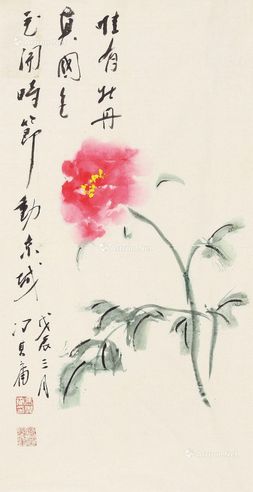 唯有牡丹
真國色
花開時節動京城
戊辰三月